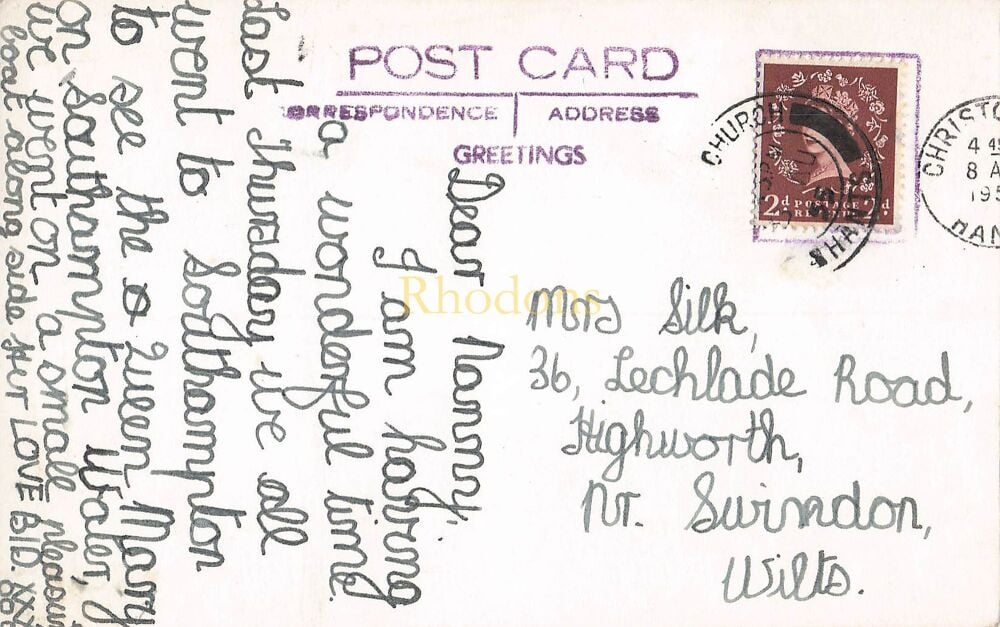 POST CARD
CORRESPONDENCE ADDRESS
GREETINGS
Dear Nanny,
I am having
a wonderful time.
Last thursday we all
went to Sodthampton
to see the Queen Mary
on Southampton Water, 
we went on a small pleasu
boat along side HER LOVE BID. XXX
Mrs Silk,
36, Lechlade Road,
Highworth,
Nr. Swindon,
Wilts.
2d POSTAGE 2d
CHURCH
55
HANTS
CHRISTC
4 45
8 A
195
HAN
Rhodons